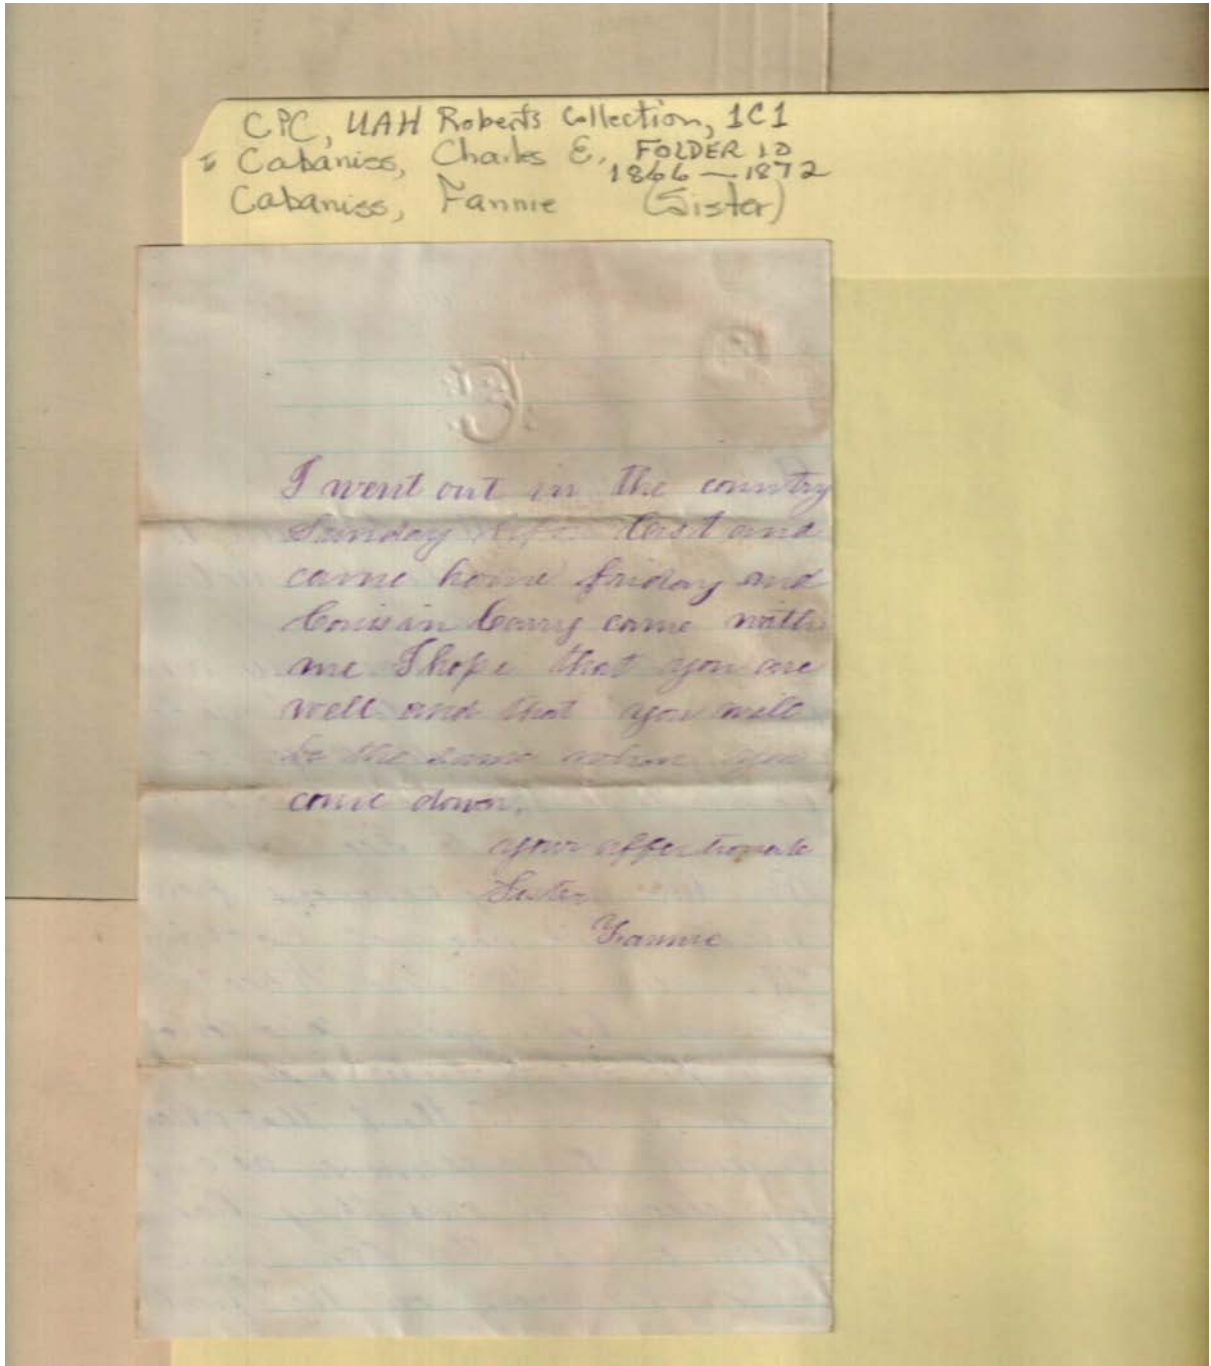 CPC, UAH Roberts Collection, 1C1
Cabaniss, Charles E, FOLDER 10
1866—1872
Cabaniss, Fannie (Sister)
I went out in the country
Sunday last and
came home friday and
Cousin Carry came with
me I hope that you are
well and that you will
be the same when you
come down.
your affectionate
Sister
Fannie